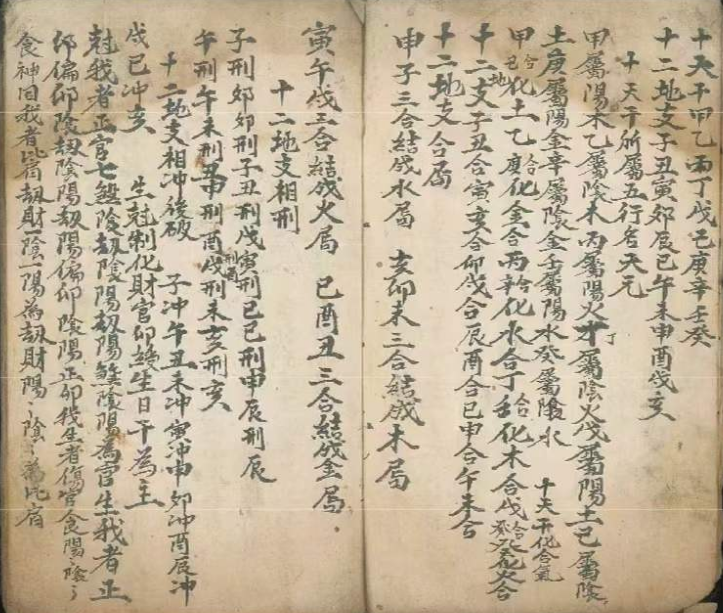 十天干甲乙丙丁戊己庚辛壬癸
十二地支子丑寅卯辰巳午未申酉戌亥
十天干所屬五行名天元
甲屬陽木乙屬陰木丙屬陽火丁屬陰火戊屬陽土己屬陰
土庚屬陽金辛屬陰金壬屬陽水癸屬陰水 十天干化合氣
甲己合化土乙庚合化金合丙辛合化水合丁壬合化木合戊癸合化火合
十二地支子丑合寅亥合卯戌合辰酉合巳申合午未合
十二地支合局
申子三合結成水局 亥卯未三合結成木局
寅午戌三合結成火局 巳酉丑三合結成金局
十二地支相刑
子刑卯卯刑子丑刑戌寅刑巳巳刑申辰刑辰
午刑午未刑丑申刑酉刑酉戌刑未亥刑亥
十二地支相冲後破 子冲午丑未冲寅冲申卯冲酉辰冲
戌巳冲亥 生尅制化財官卯生日干為主
尅我者正官七煞陰劫陰陽劫陽煞陰陽為官生我者正
卯偏卯陰劫陰陽劫陽偏卯陰陽正卯我生者傷官食陽陰
食神旧我者比肩劫財一陰一陽為劫財陽〻陰〻為比肩